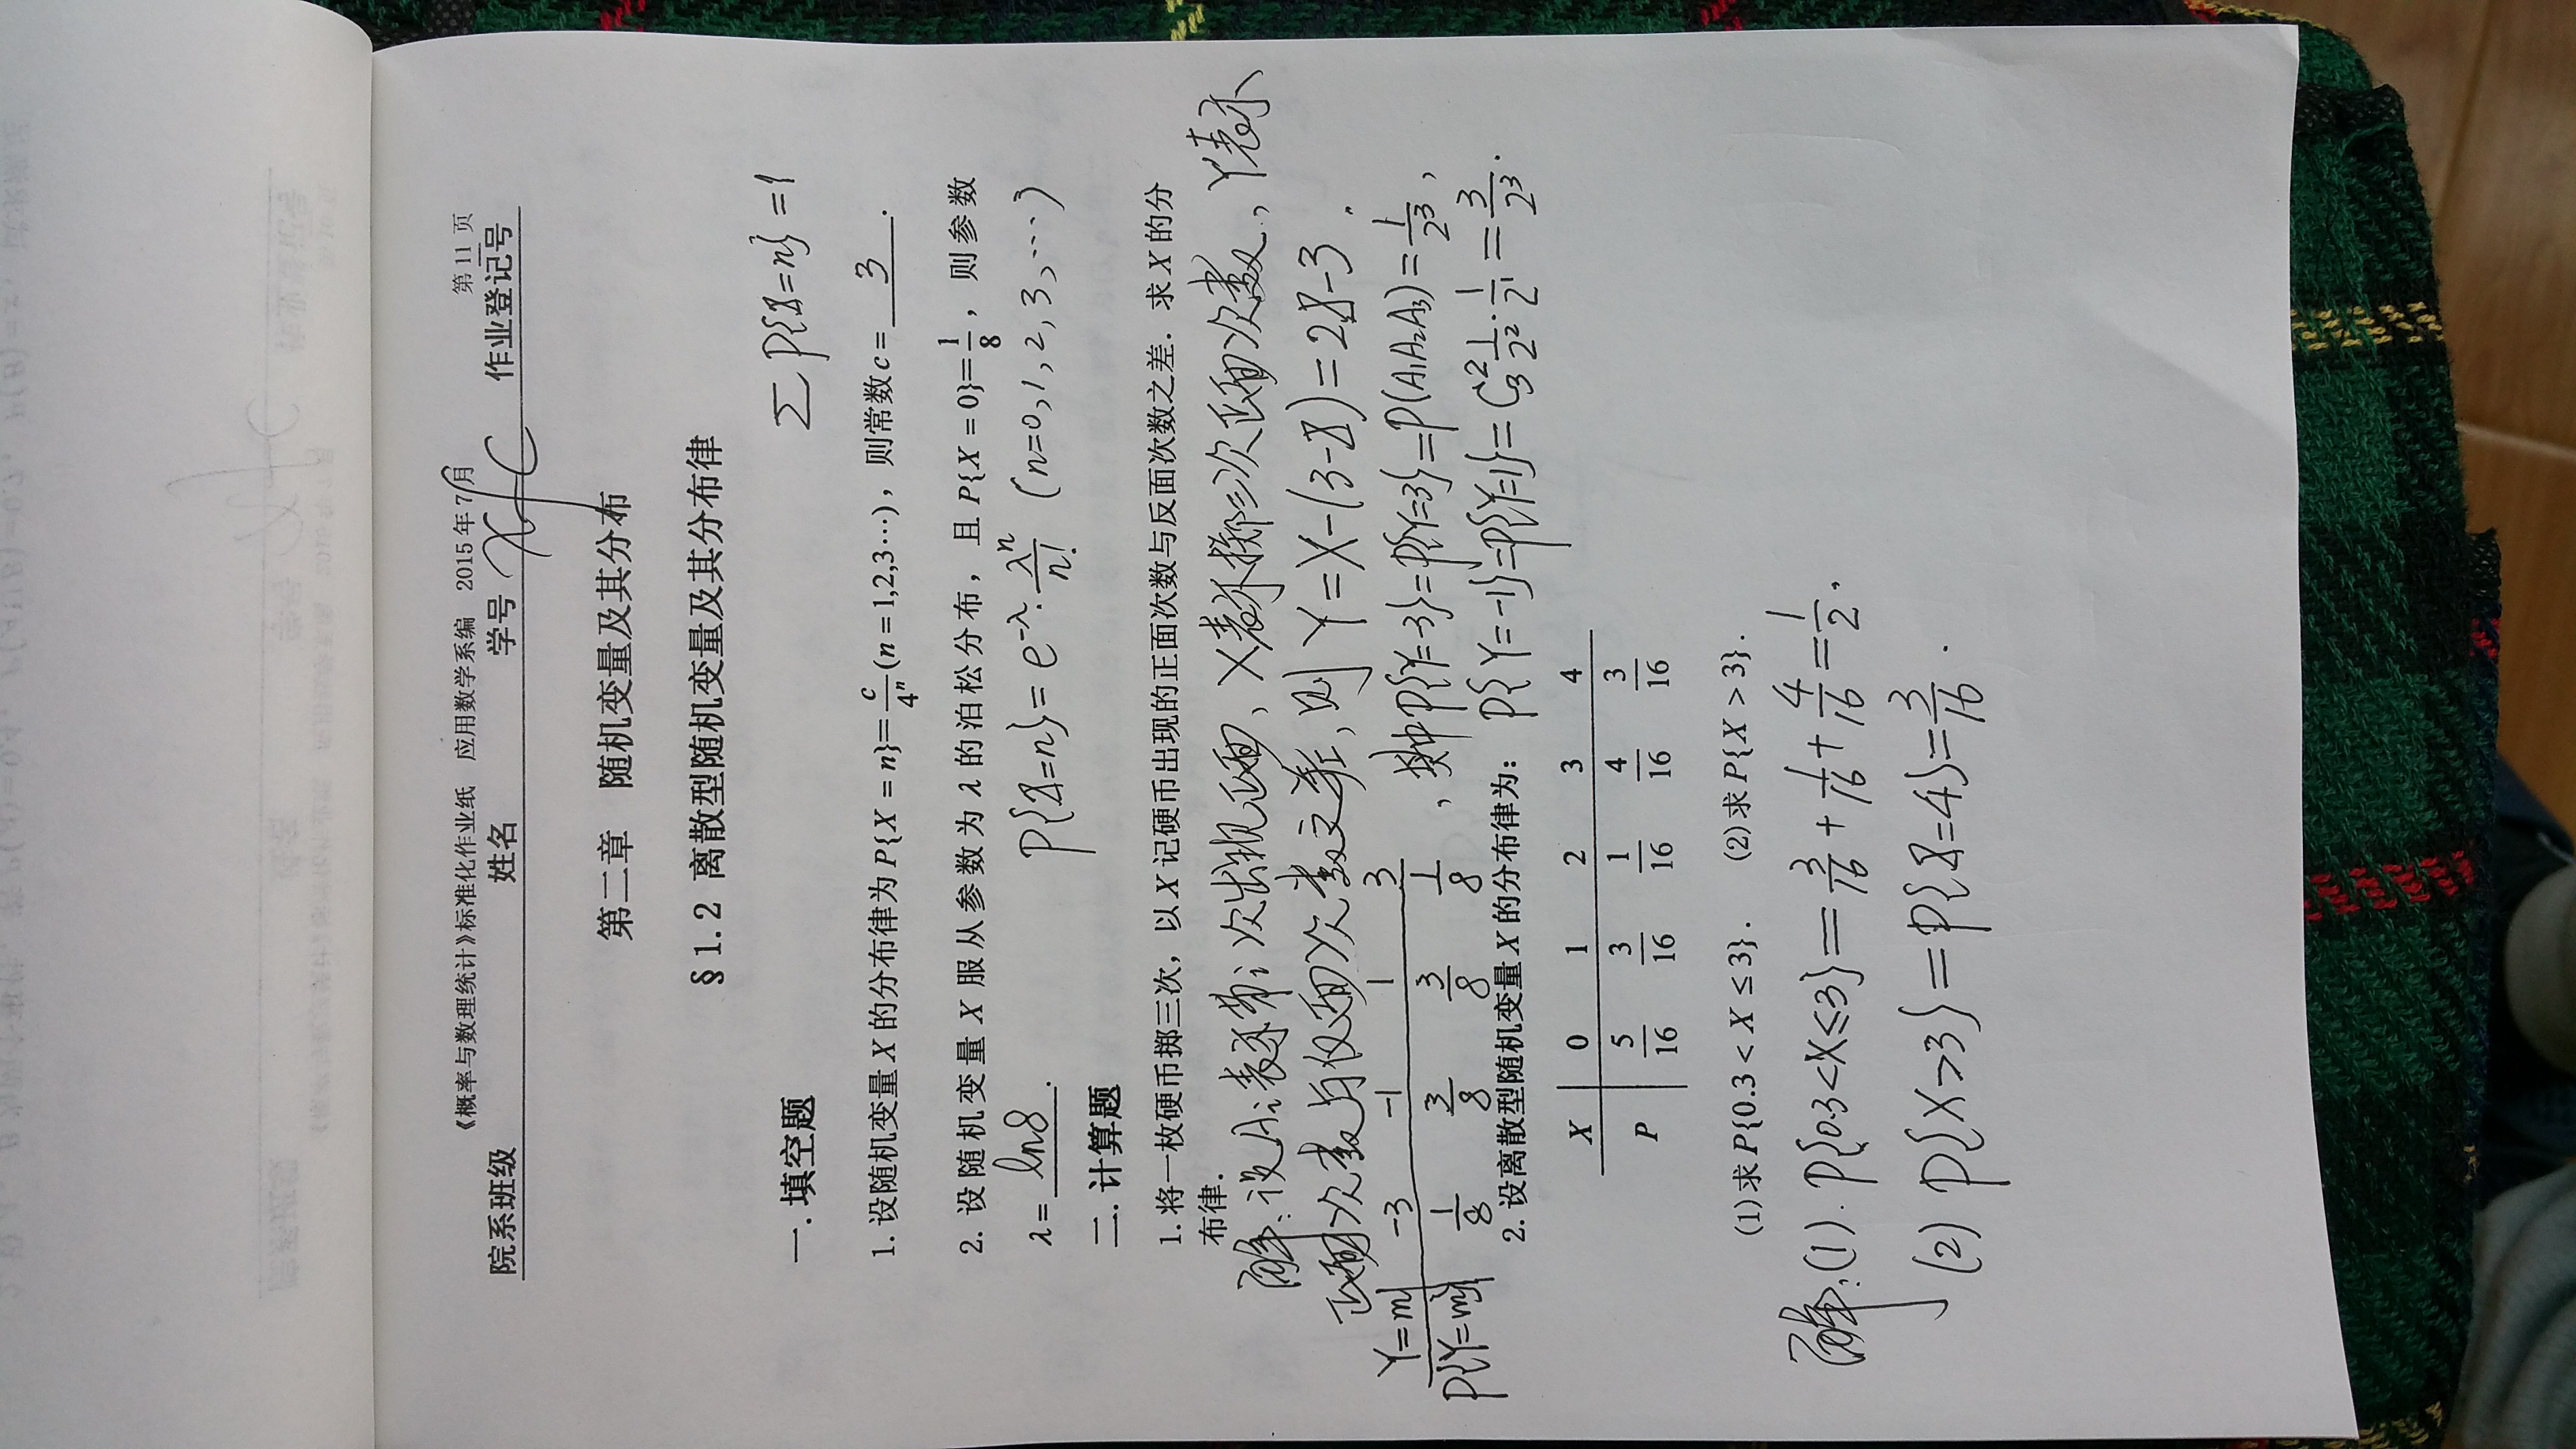 《概率与数理统计》标准化作业纸 应用数学系编 2015年7月 第11页
院系班级 姓名 学号 xfc 作业登记号
第二章 随机变量及其分布
§1.2 离散型随机变量及其分布律
一.填空题
∑P{X=n}=1
1.设随机变量X的分布律为P{X=n}=c/4^n(n=1,2,3…),则常数c=3.
2.设随机变量X服从参数为λ的泊松分布,且P{X=0}=1/8,则参数
λ=ln8. P{X=n}=e^-λ·λ^n/n! (n=0,1,2,3,…)
二.计算题
1.将一枚硬币掷三次,以X记硬币出现的正面次数与反面次数之差.求X的分
布律.
解:设Ai表示第i次出现正面,X表示掷三次正面次数,Y表示
正面次数与反面次数之差,则Y=X-(3-X)=2X-3.
Y=m -3 -1 1 3
P{Y=m} 1/8 3/8 3/8 1/8 ,其中P{Y=-3}=P{Y=3}=P(A₁A₂A₃)=1/2³,
P{Y=-1}=P{Y=1}=C₃²1/2²·1/2¹=3/2³.
2.设离散型随机变量X的分布律为:
X 0 1 2 3 4
P 5/16 3/16 1/16 4/16 3/16
(1)求P{0.3<X≤3}. (2)求P{X>3}.
解:(1).P{0.3<X≤3}=3/16+1/16+4/16=1/2.
(2)P{X>3}=P{X=4}=3/16.